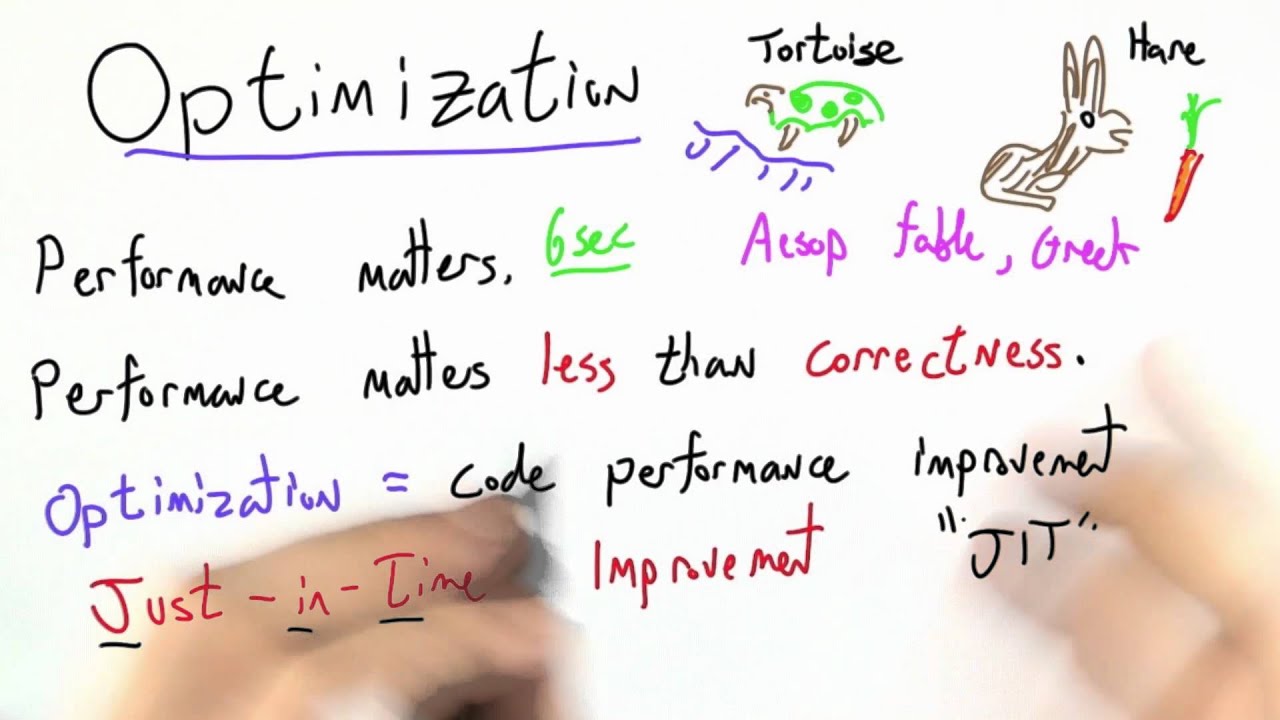 Optimization
Tortoise
Hare
Performance matters. 6sec
Aesop fable, Greek
Performance matters less than correctness.
Optimization = code performance improvement
Just-in-Time Improvement "JIT"